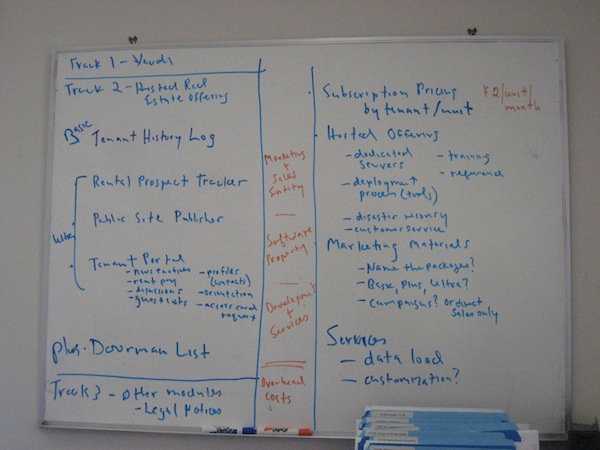 Track 1 - Yardi
Track 2 - Hosted Real
Estate Offering
Basic Tenant History Log
Rental Prospect Tracker
Public Site Publisher
Ultra
Tenant Portal
- news + notices
- rent pay
- discussions
- guest lists
- profiles
(contacts)
- orientation
- access card
request
plus - Doorman List
Track 3 - Other modules
- Legal Notices
Marketing
+
Sales
Entity
—
Software
Property
—
Development
+
Services
Overhead
Costs
Subscription Pricing
by tenant/unit
$2/unit/
month
Hosted Offering
- dedicated
servers
- deployment
process (tools)
- disaster recovery
- customer service
- training
Marketing Materials
- Name the packages?
- Basic, Plus, Ultra?
- Campaigns? or direct
sales only
Services
- data load
- customization?